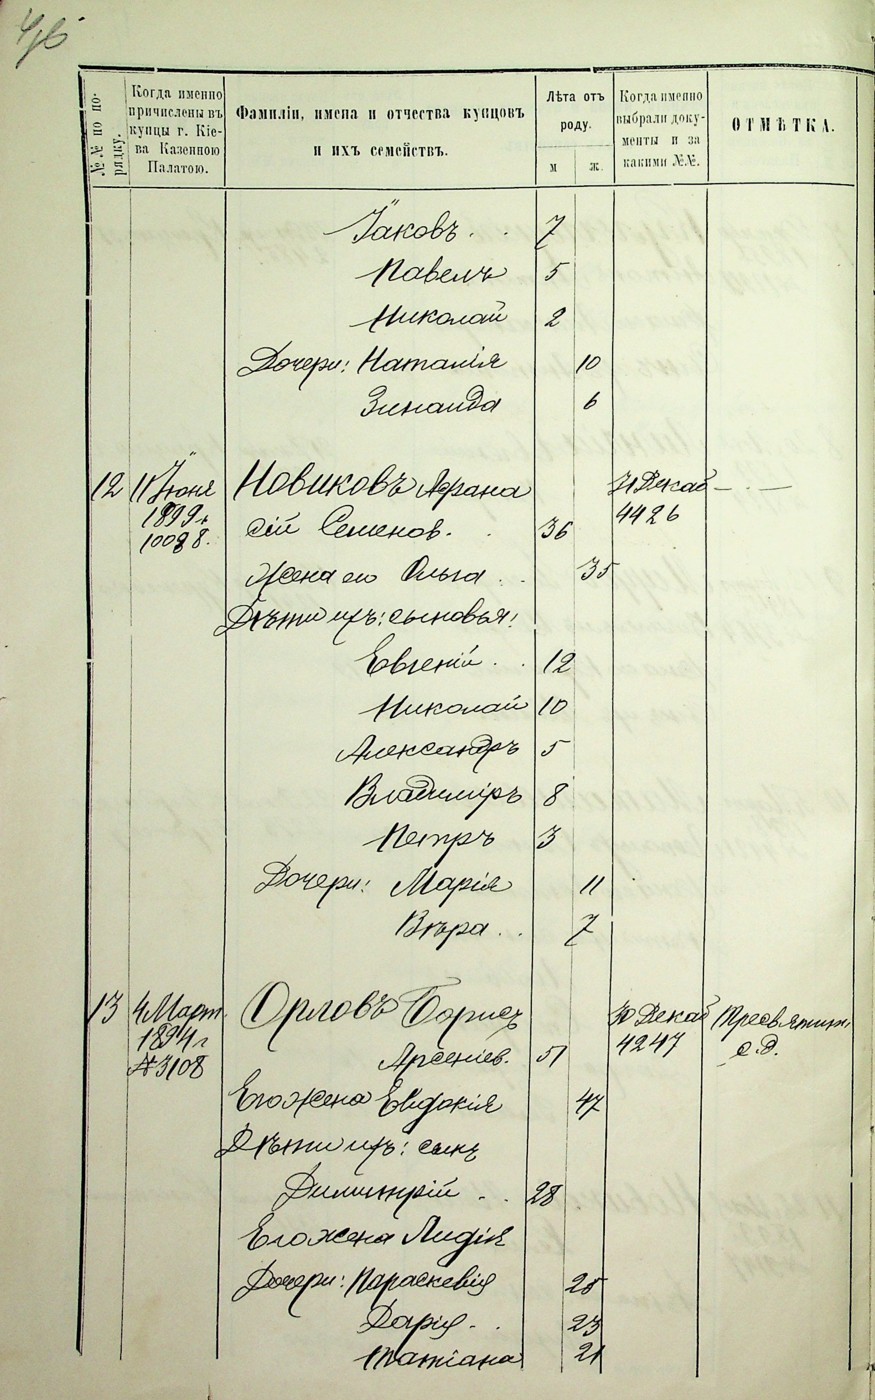 №№ по по-
рядку.
Когда именно
причислены въ
купцы г. Кіе-
ва Казенною
Палатою.
Фамиліи, имена и отчества купцовъ
и ихъ семействъ.
Лѣта отъ
роду.
м
ж.
Когда именно
выбрали доку-
менты и за
какими №№.
ОТМѢТКА.
Іаковъ . . 7
Павелъ 5
Николай 2
Дочери: Наталія 10
Зинаида 6
12 11 Іюня Новиковъ Афана 31 Декаб — . —
1899 г. сій Семенов. . 36 4426
10088.
Жена его Ольга . . 35
Дѣти ихъ: сыновья:
Евгеній . . 12
Николай 10
Александръ 5
Владиміръ 8
Петръ 3
Дочери: Марія 11
Вѣра . . 7
13 4 Март. Орловъ Борисъ 30 Декаб
1894 г Арсеніев. 51 4247
№ 3108
Его жена Евдокія 47
Дѣти ихъ: сынъ
Димитрій . . 28
Его жена Лидія
Дочери: Параскевія 25
Дарія . . 23
Татіана 21